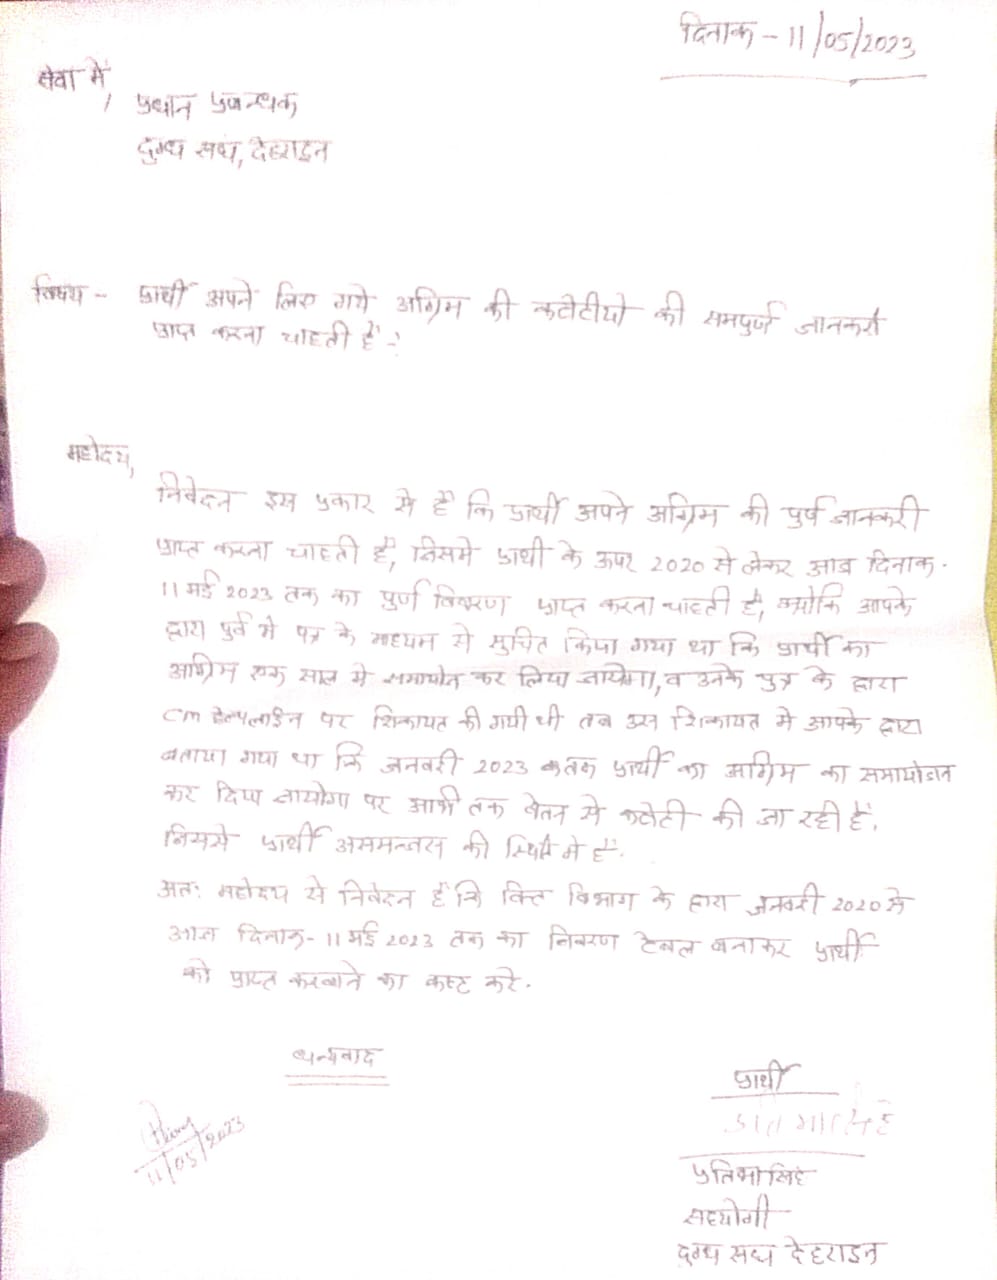 दिनाक - 11/05/2023
सेवा में,
प्रधान प्रबन्धक
दुग्ध संघ, देहरादुन
विषय - प्रार्थी अपने लिए गये अग्रिम की कटोटीयो की समपुर्ण जानकारी
प्राप्त करना चाहती है -:
महोदय,
निवेदन इस प्रकार से है कि प्रार्थी अपने अग्रिम की पुर्ण जानकरी
प्राप्त करना चाहती है, जिसमे प्रार्थी के ऊपर 2020 से लेकर आज दिनाक -
11 मई 2023 तक का पुर्ण विवरण प्राप्त करना चाहती है, क्योकि आपके
द्वारा पुर्व मे पत्र के माध्यम से सुचित किया गया था कि प्रार्थी का
अग्रिम एक साल मे समायोत कर लिया जायेगा, व उनके पुत्र के द्वारा
cm हेल्पलाईन पर शिकायत की गयी थी तब उस शिकायत मे आपके द्वारा
बताया गया था कि जनवरी 2023 तक प्रार्थी का अग्रिम का समायोजन
कर दिया जायेगा पर आभी तक वेतन से कटोटी की जा रही है.
जिससे प्रार्थी असमन्जस की स्थिति मे है.
अतः महोदय से निवेदन है कि वित्त विभाग के द्वारा जनवरी 2020 से
आज दिनाक - 11 मई 2023 तक का विवरण टेबल बनाकर प्रार्थी
को प्राप्त करवाने का कष्ट करे.
धन्यवाद
प्रार्थी
11/05/2023
प्रतिभा सिंह
सहयोगी
दुग्ध संघ देहरादुन